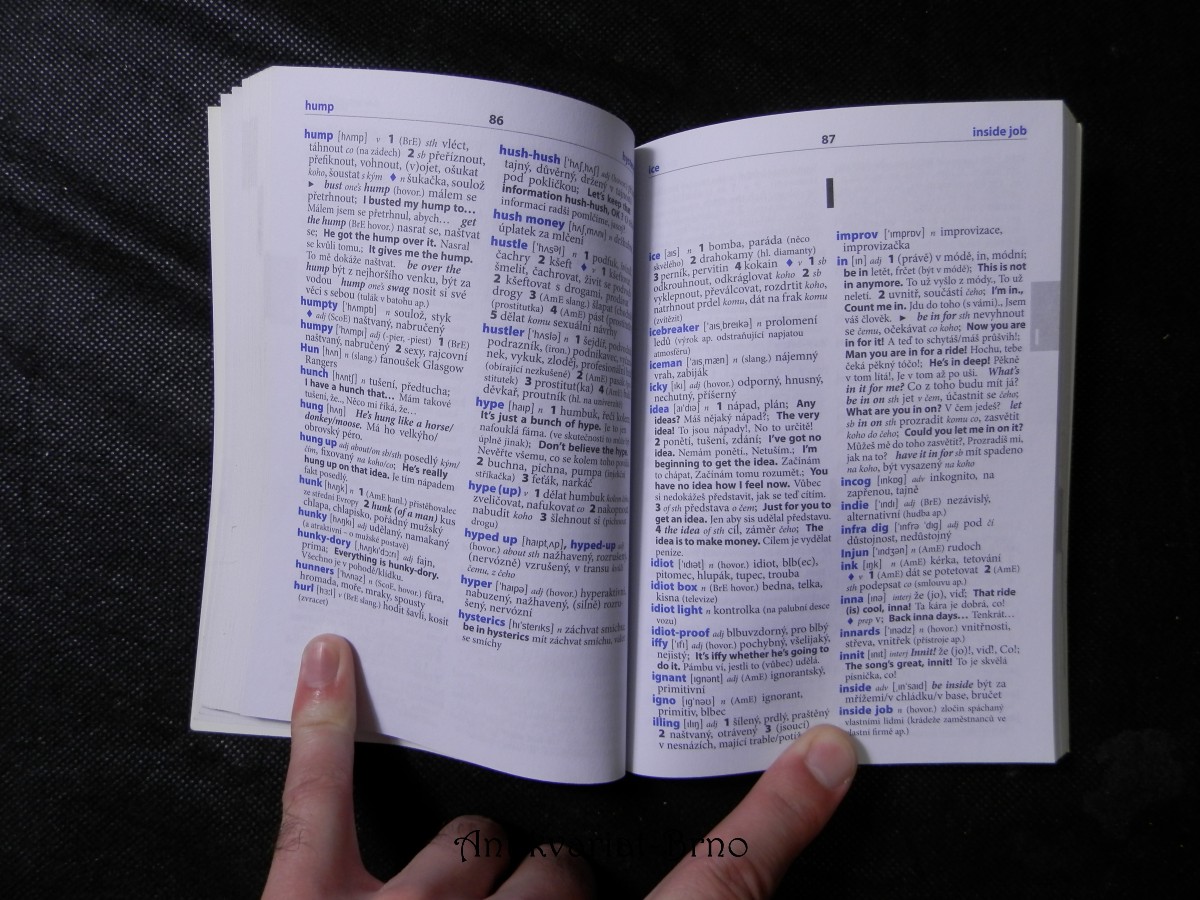 hump
86
hump [hʌmp] v 1 (BrE) sth vléct,
táhnout co (na zádech) 2 sb přeříznout,
přefiknout, vohnout, (v)ojet, ošukat
koho, šoustat s kým ♦ n šukačka, soulož
► bust one's hump (hovor.) málem se
přetrhnout; I busted my hump to…
Málem jsem se přetrhnul, abych… get
the hump (BrE hovor.) nasrat se, naštvat
se; He got the hump over it. Nasral
se kvůli tomu.; It gives me the hump.
To mě dokáže naštvat. be over the
hump být z nejhoršího venku, být za
vodou hump one's swag nosit si své
věci s sebou (tulák v batohu ap.)
humpty [hʌmptɪ] n soulož, styk
♦ adj (ScoE) naštvaný, nabručený
humpy [hʌmpɪ] adj (-pier, -piest) 1 (BrE)
naštvaný, nabručený 2 sexy, rajcovní
Hun [hʌn] n (slang.) fanoušek Glasgow
Rangers
hunch [hʌntʃ] n tušení, předtucha;
I have a hunch that… Mám takové
tušení, že… Něco mi říká, že…
hung [hʌŋ] He's hung like a horse/
donkey/moose. Má ho velkýho/
obrovský péro.
hung up adj about/on sb/sth posedlý kým/
čím, fixovaný na koho/co; He's really
hung up on that idea. Je tím nápadem
fakt posedlý.
hunk [hʌŋk] n 1 (AmE hanl.) přistěhovalec
ze střední Evropy 2 hunk (of a man) kus
chlapa, chlapisko, pořádný mužský
hunky [hʌŋkɪ] adj udělaný, namakaný
(a atraktivní – o mužské postavě)
hunky-dory [ˌhʌŋkɪˈdɔːrɪ] adj fajn,
prima; Everything is hunky-dory.
Všechno je v pohodě/klídku.
hunners [hʌnəz] n (ScoE, hovor.) fůra,
hromada, moře, mraky, spousty
hurl [hɜːl] v (BrE slang.) hodit šavli, kosit
(zvracet)
hush-hush [ˈhʌʃˌhʌʃ] adj
tajný, důvěrný, držený v
pod pokličkou; Let's keep
information hush-hush, OK?
informaci radši pomlčíme,
hush money [hʌʃˌmʌnɪ] n
úplatek za mlčení
hustle [ˈhʌsəl] n 1 podfuk,
čachry 2 kšeft ♦ v 1
šmelit, čachrovat, živit se
2 kšeftovat s drogami,
drogy 3 (AmE slang.)
(prostitutka) 4 (AmE) pást
5 dělat komu sexuální návrhy
hustler [ˈhʌslə] n 1 šejdíř,
podrazník, (iron.) podnikavec,
nek, vykuk, zloděj, profesionální
(obírající nezkušené) 2 (AmE)
stitutek) 3 prostitut(ka) 4
děvkař, proutník
hype [haɪp] n 1 humbuk,
It's just a bunch of hype. Je to jen
nafouklá fáma. (ve skutečnosti
úplně jinak); Don't believe the hype.
Nevěř všemu, co se kolem toho
2 buchna, píchna, pumpa (injekční
stříkačka) 3 feťák, narkáč
hype (up) v 1 dělat humbuk
zveličovat, nafukovat co 2
nabudit koho 3 šlehnout si
drogu)
hyped up [haɪptˌʌp], hyped-up adj
(hovor.) about sth nažhavený,
(nervózně) vzrušený, v transu
čemu, z čeho
hyper [ˈhaɪpə] adj (hovor.) hyperaktivní,
nabuzený, nažhavený, (silně)
šený, nervózní
hysterics [hɪˈsterɪks] n záchvat smíchu
be in hysterics mít záchvat smíchu,
se smíchy
ice
87
inside job
I
ice [aɪs] n 1 bomba, paráda (něco
skvělého) 2 drahokamy (hl. diamanty)
3 perník, pervitin 4 kokain ♦ v 1 sb
odkrouhnout, odkráglovat koho 2 sb
vyklepnout, převálcovat, rozdrtit koho,
natrhnout prdel komu, dát na frak komu
(zvítězit)
icebreaker [ˈaɪsˌbreɪkə] n prolomení
ledů (výrok ap. odstraňující napjatou
atmosféru)
iceman [ˈaɪsˌmæn] n (slang.) nájemný
vrah, zabiják
icky [ɪkɪ] adj (hovor.) odporný, hnusný,
nechutný, příšerný
idea [aɪˈdɪə] n 1 nápad, plán; Any
ideas? Máš nějaký nápad?; The very
idea! To jsou nápady!, No to určitě!
2 ponětí, tušení, zdání; I've got no
idea. Nemám ponětí., Netuším.; I'm
beginning to get the idea. Začínám
to chápat, Začínám tomu rozumět.; You
have no idea how I feel now. Vůbec
si nedokážeš představit, jak se teď cítím.
3 of sth představa o čem; Just for you to
get an idea. Jen aby sis udělal představu.
4 the idea of sth cíl, záměr čeho; The
idea is to make money. Cílem je vydělat
peníze.
idiot [ˈɪdɪət] n (hovor.) idiot, blb(ec),
pitomec, hlupák, tupec, trouba
idiot box n (BrE hovor.) bedna, telka,
kisna (televize)
idiot light n kontrolka (na palubní desce
vozu)
idiot-proof adj blbuvzdorný, pro blbý
iffy [ˈɪfɪ] adj (hovor.) pochybný, všelijaký,
nejistý; It's iffy whether he's going to
do it. Pámbu ví, jestli to (vůbec) udělá.
ignant [ɪgnənt] adj (AmE) ignorantský,
primitivní
igno [ɪgˈnəʊ] n (AmE) ignorant,
primitiv, blbec
illing [ɪlɪŋ] adj 1 šílený, prdlý, praštěný
2 naštvaný, otrávený 3 (jsoucí)
v nesnázích, mající trable/
improv [ˈɪmprɒv] n improvizace,
improvizačka
in [ɪn] adj 1 (právě) v módě, in, módní;
be in letět, frčet (být v módě); This is not
in anymore. To už vyšlo z módy., To už
neletí. 2 uvnitř, součástí čeho; I'm in.,
Count me in. Jdu do toho (s vámi)., Jsem
váš člověk. ► be in for sth nevyhnout
se čemu, očekávat co koho; Now you are
in for it! A teď to schytáš/máš průšvih!;
Man you are in for a ride! Hochu, tebe
čeká pěkný tóčo!; He's in deep! Pěkně
v tom lítá!, Je v tom až po uši. What's
in it for me? Co z toho budu mít já?
be in on sth jet v čem, účastnit se čeho;
What are you in on? V čem jedeš? let
sb in on sth prozradit komu co, zasvětit
koho do čeho; Could you let me in on it?
Můžeš mě do toho zasvětit?, Prozradíš mi,
jak na to? have it in for sb mít spadeno
na koho, být vysazený na koho
incog [ɪnkɒg] adv inkognito, na
zapřenou, tajně
indie [ˈɪndɪ] adj (BrE) nezávislý,
alternativní (hudba ap.)
infra dig [ˈɪnfrə ˈdɪg] adj pod čí
důstojnost, nedůstojný
Injun [ˈɪndʒən] n (AmE) rudoch
ink [ɪŋk] n (AmE) kérka, tetování
♦ v 1 (AmE) dát se potetovat 2 (AmE)
sth podepsat co (smlouvu ap.)
inna [ɪnə] interj že (jo), viď; That ride
(is) cool, inna! Ta kára je dobrá, co!
♦ prep v; Back inna days… Tenkrát…
innards [ˈɪnədz] n (hovor.) vnitřnosti,
střeva, vnitřek (přístroje ap.)
innit [ɪnɪt] interj Innit! že (jo)!, viď!, Co!;
The song's great, innit! To je skvělá
písnička, co!
inside adv [ˌɪnˈsaɪd] be inside být za
mřížemi/v chládku/v base, bručet
inside job n (hovor.) zločin spáchaný
vlastními lidmi (krádeže zaměstnanců ve
vlastní firmě ap.)
I
Antikvariát Brno